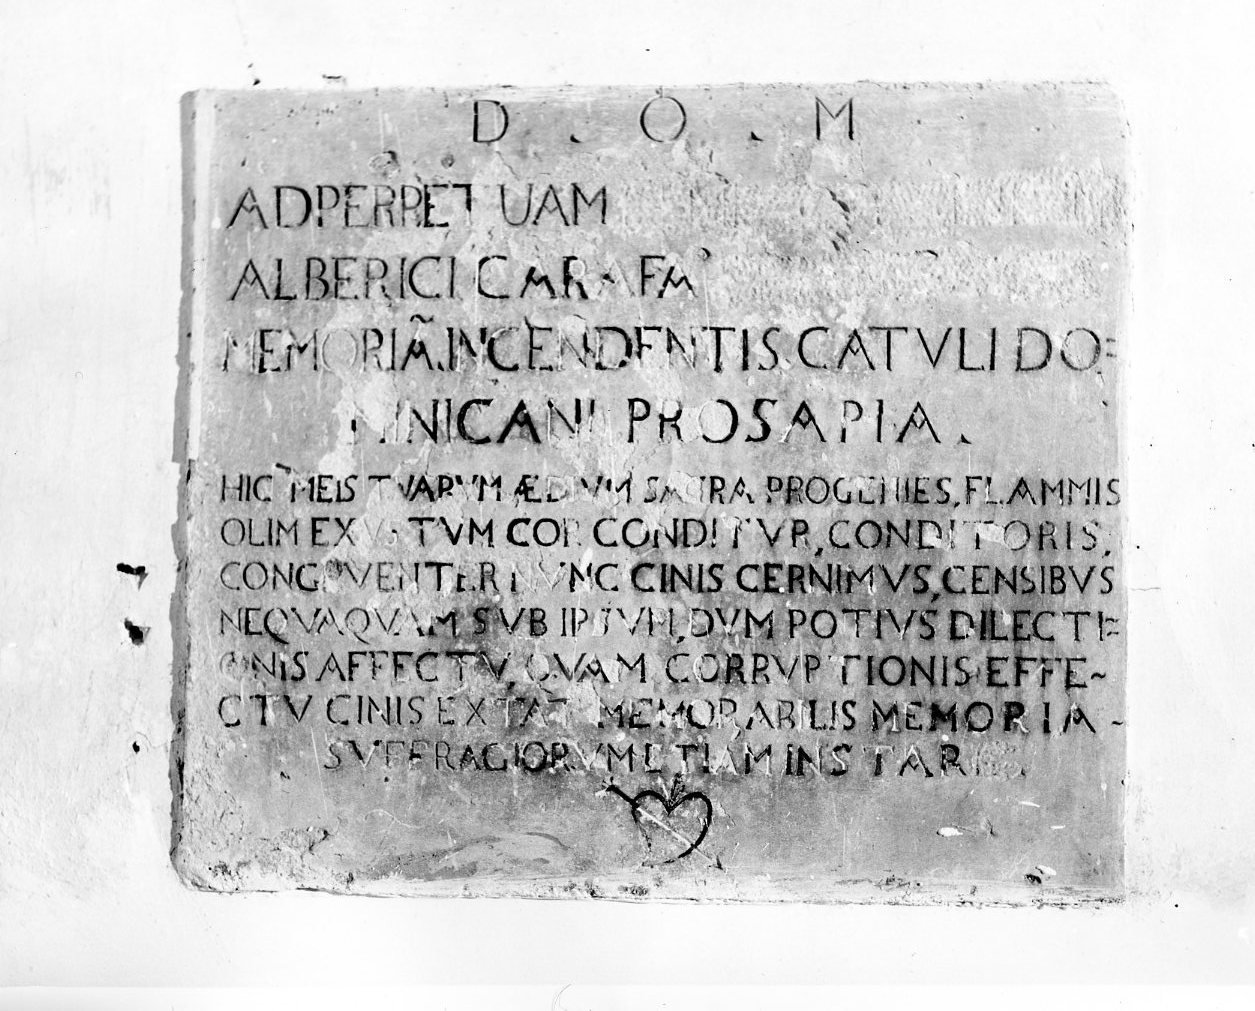 D . O . M
AD PERPETUAM
ALBERICI CARAFA
MEMORIÃ. INCENDENTIS CATVLI DO=
MINICANI PROSAPIA.
HIC MEIS TVARVM ÆDIVM SACRA PROGENIES, FLAMMIS
OLIM EXVSTVM COR CONDITVR, CONDITORIS,
CONGRVENTER NVNC CINIS CERNIMVS, CENSIBVS
NEQVAQVAM SVB IPSIVM, DVM POTIVS DILECTI=
ONIS AFFECTV, QVAM CORRVPTIONIS EFFE-
CTV CINIS EXTAT MEMORABILIS MEMORIA-
SVFFRAGIORVM ETIAM INSTAR